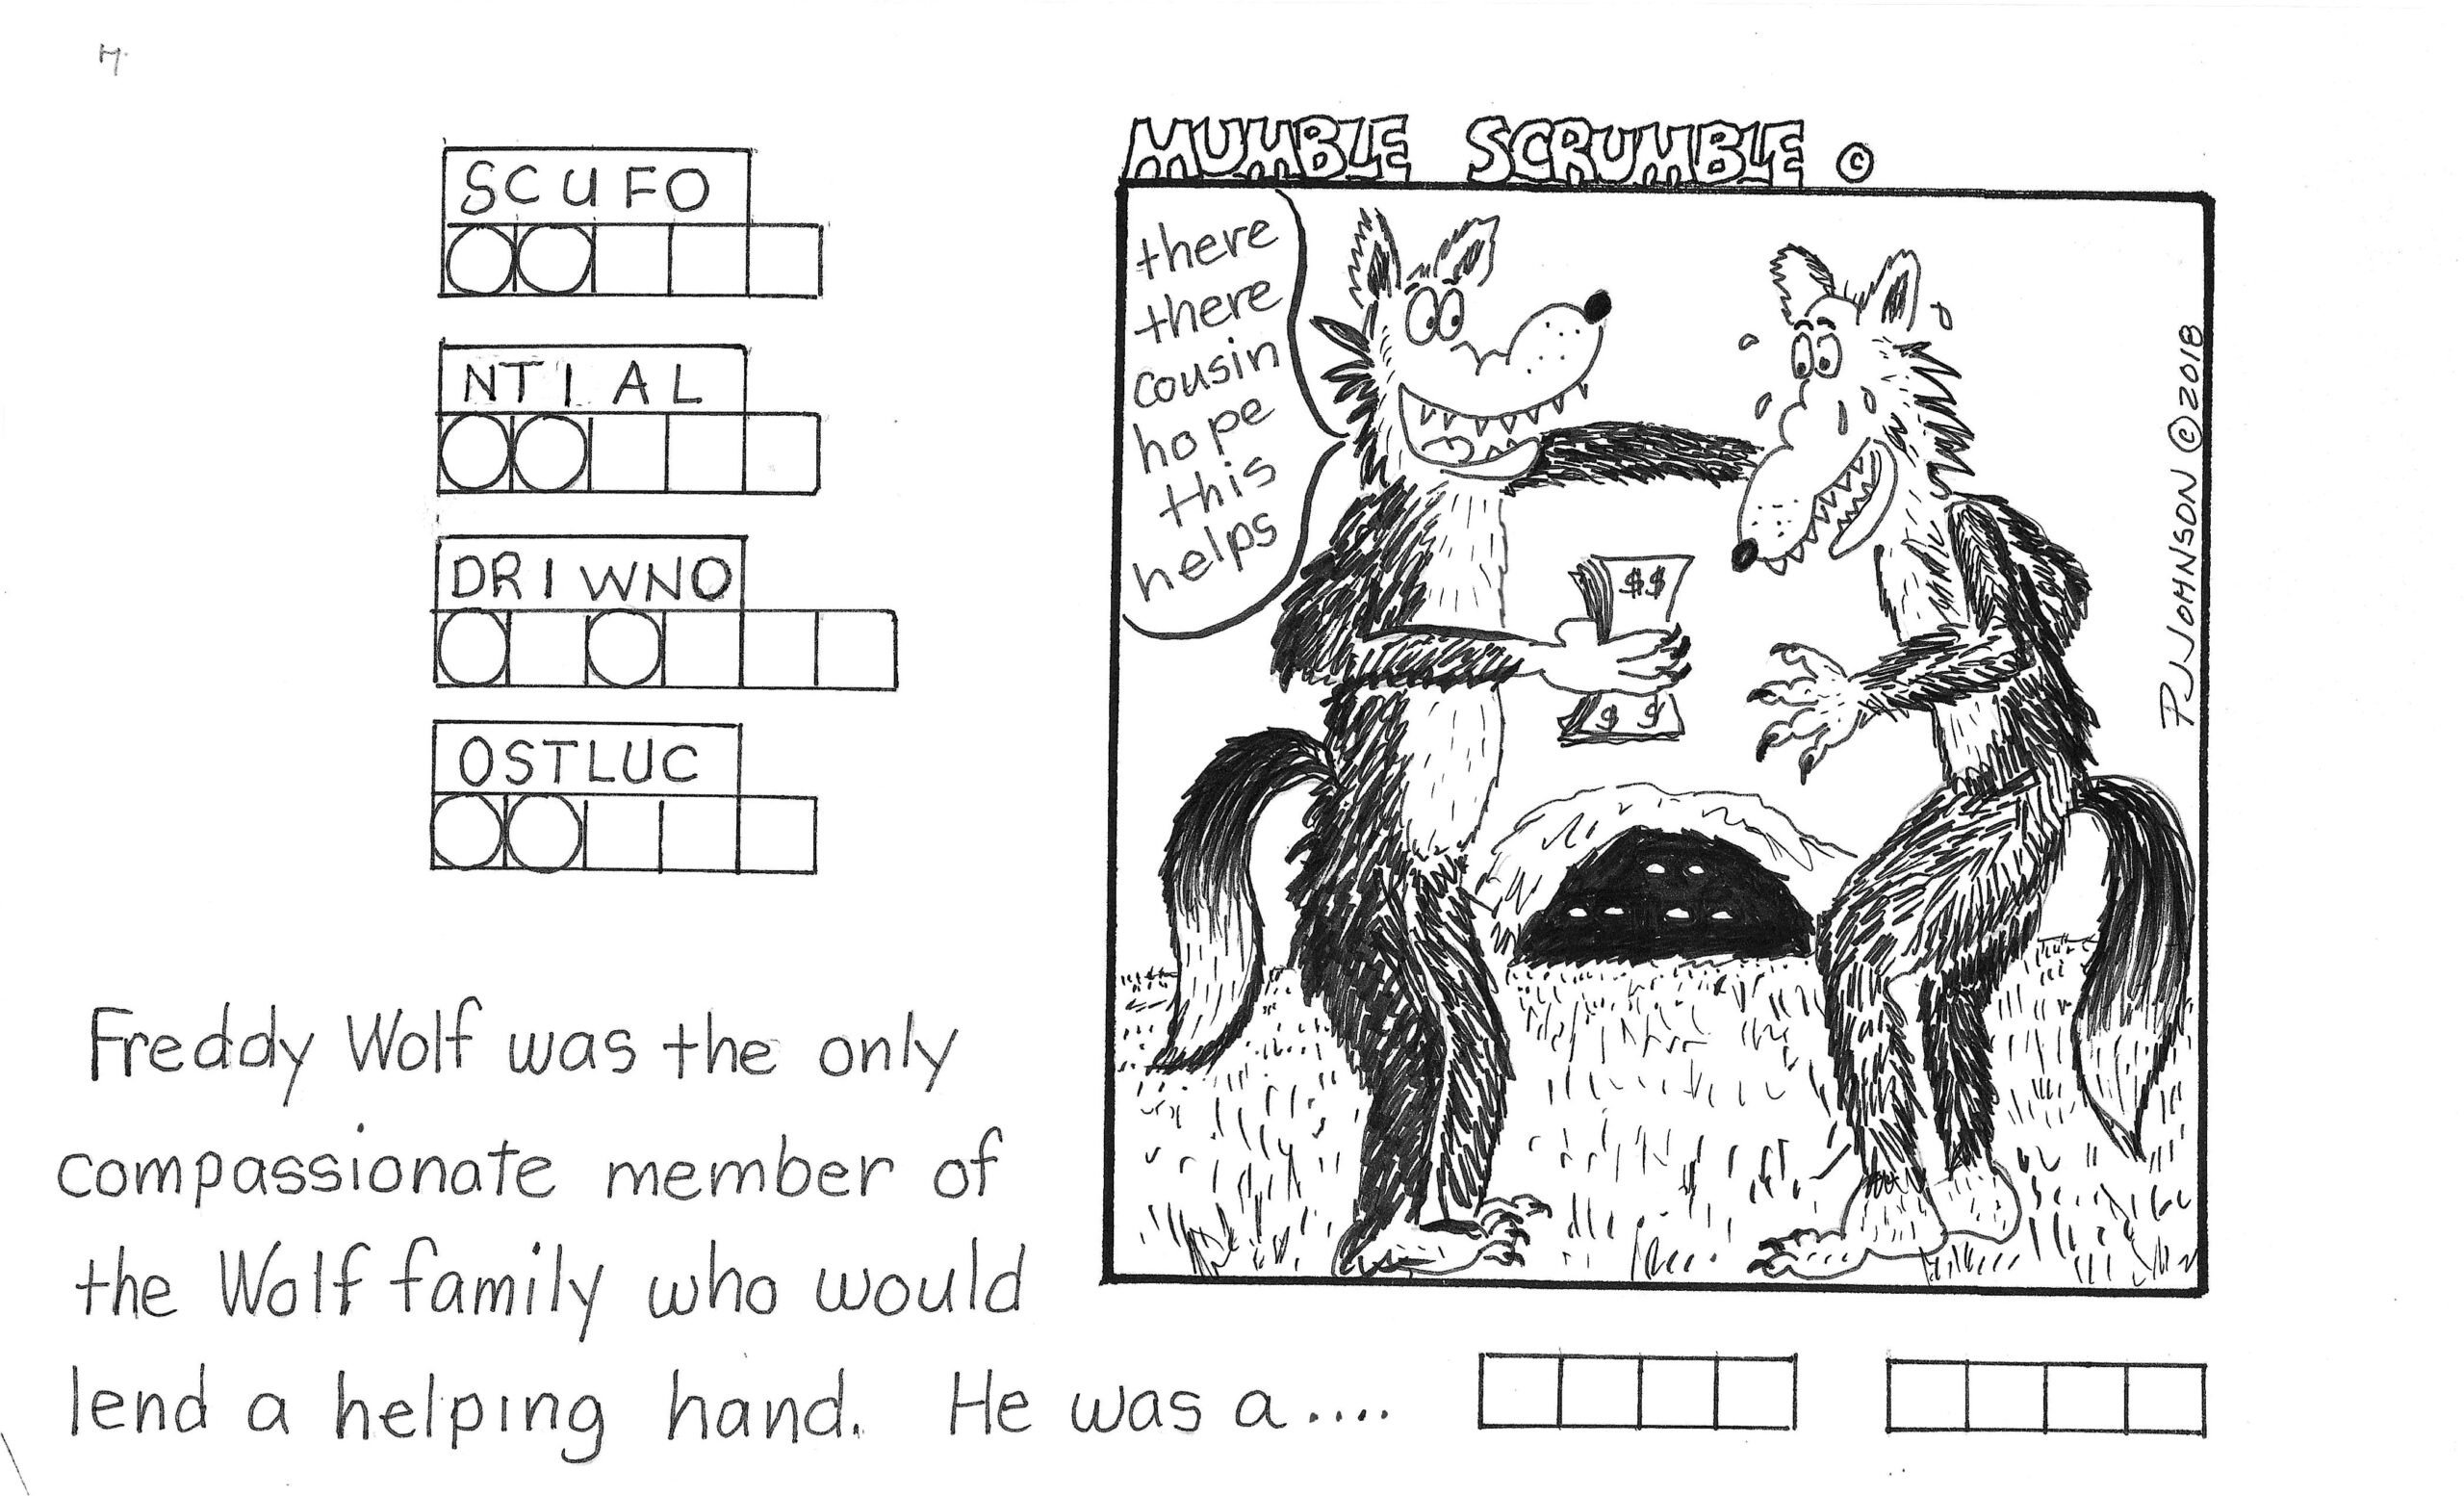 MUMBLE SCRUMBLE ©
SCUFO
NTIAL
DRIWNO
OSTLUC
there
there
cousin
hope
this
helps
PJJOHNSON © 2018
Freddy Wolf was the only
compassionate member of
the Wolf family who would
lend a helping hand. He was a....